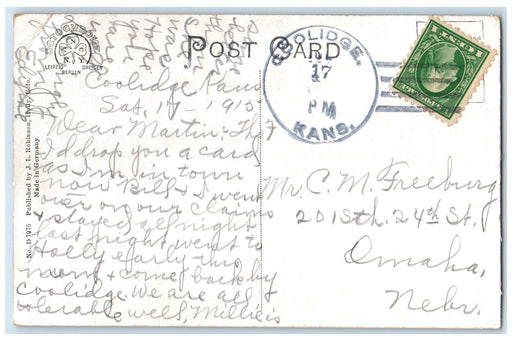 POST CARD
OCTOCHROME
N.Y.
LEIPZIG DRESDEN
BERLIN
No. D 7975 Published by J. L. Robinson, Holly, Colo.
Made in Germany
COOLIDGE,
17
PM
KANS.
Coolidge Kans
Sat. 17-1915
Dear Martin: Tho't
I'd drop you a card
as I'm in town
now Bill & I went
over on our claims
& stayed all night
last night went to
Holly early this
morn & come back by
Coolidge. We are all
tolerable well, Millie is
Mr. C. M. Freeburg
201 Sth. 24th St,
Omaha,
Nebr.